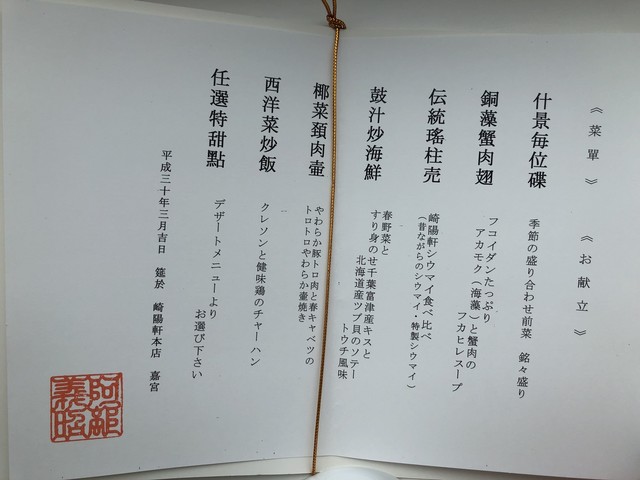 《菜單》
《お献立》
什景毎位碟
季節の盛り合わせ前菜 銘々盛り
銅藻蟹肉翅
フコイダンたっぷり
アカモク(海藻)と蟹肉の
フカヒレスープ
伝統瑤柱売
崎陽軒シウマイ食べ比べ
(昔ながらのシウマイ・特製シウマイ)
鼓汁炒海鮮
春野菜と
すり身のせ千葉富津産キスと
北海道産ツブ貝のソテー
トウチ風味
椰菜頚肉壷
やわらか豚トロ肉と春キャベツの
トロトロやわらか壷焼き
西洋菜炒飯
クレソンと健味鶏のチャーハン
任選特甜點
デザートメニューより
お選び下さい
平成三十年三月吉日 筵於 崎陽軒本店 嘉宮
阿部
義昭